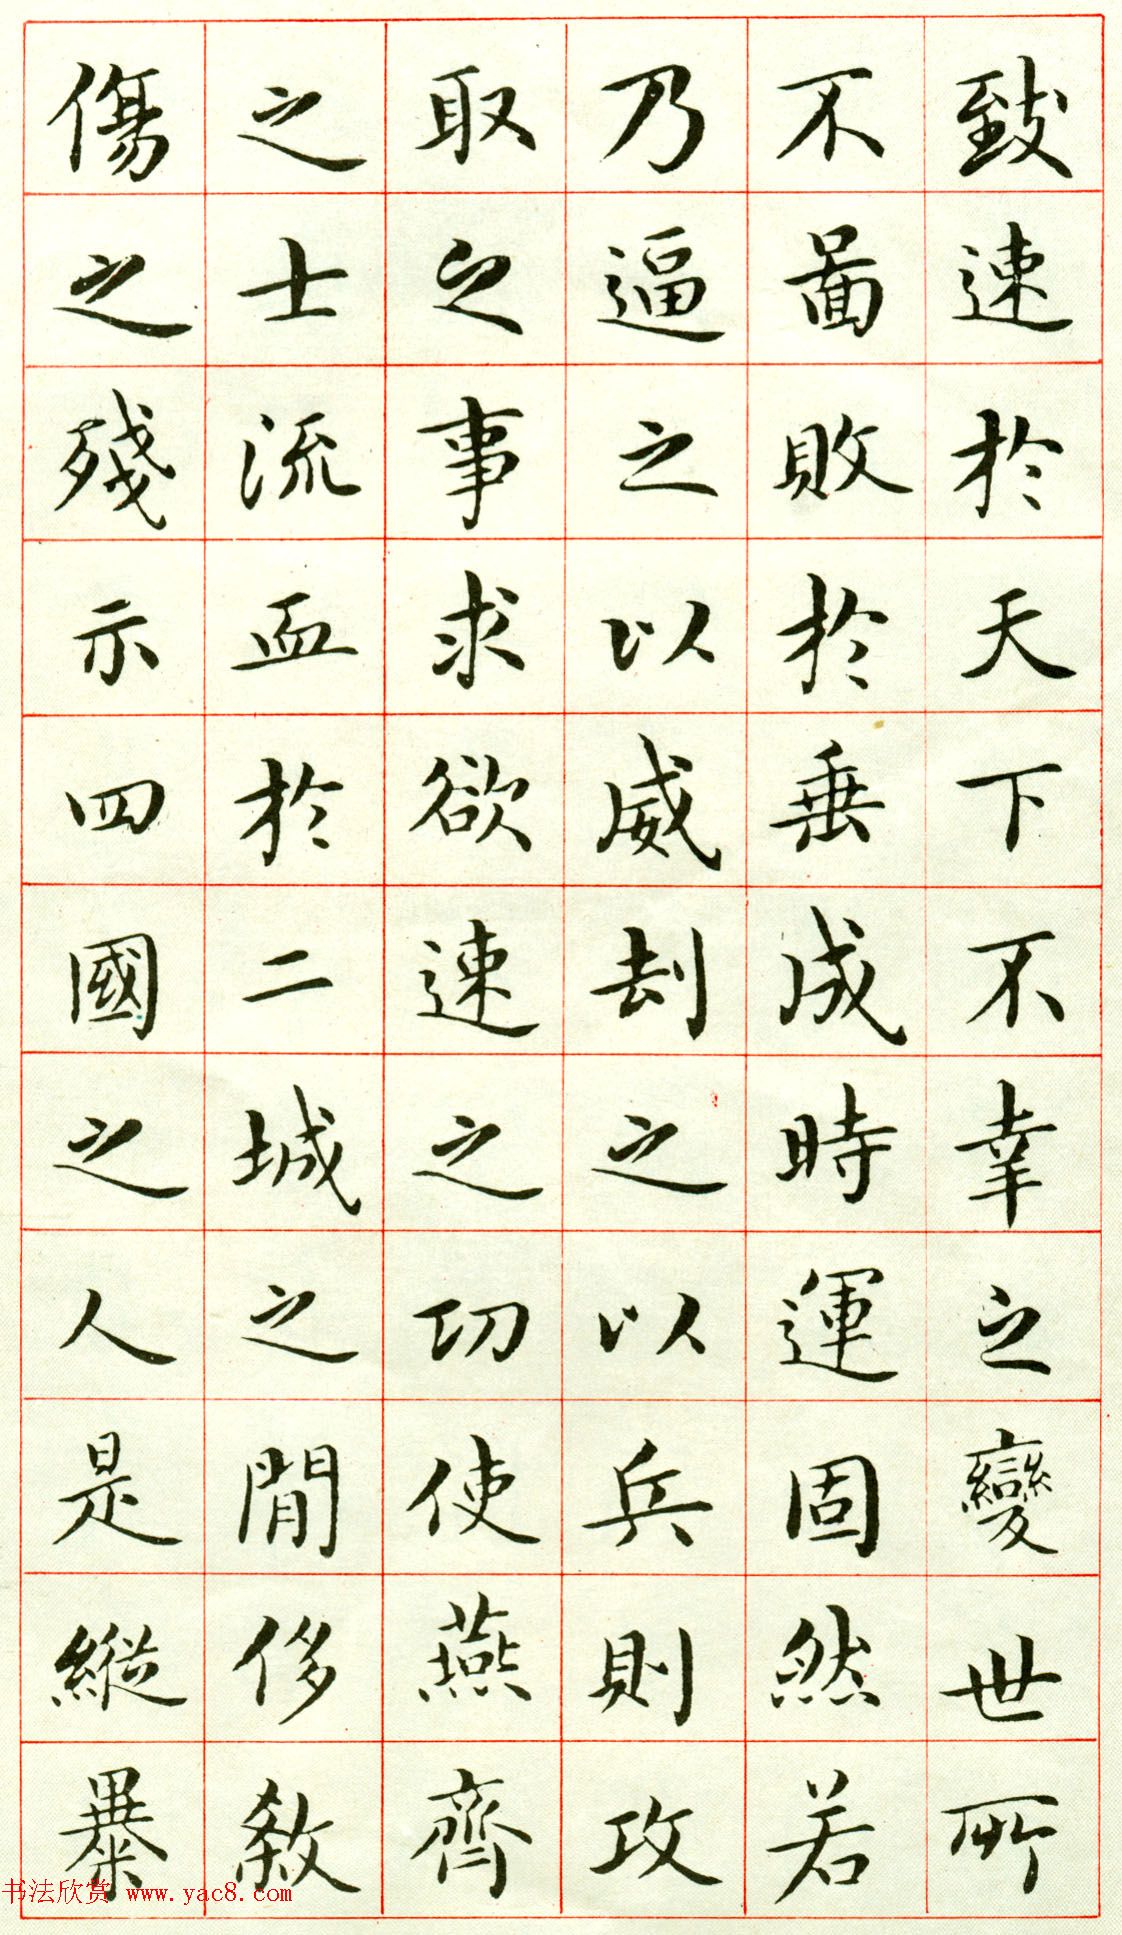 致速於天下不幸之變世所
不啚敗於垂成時運固然若
乃逼之以威刦之以兵則攻
取之事求欲速之功使燕齊
之士流血於二城之閒侈敎
傷之殘示四國之人是縱暴
书法欣赏 www.yac8.com